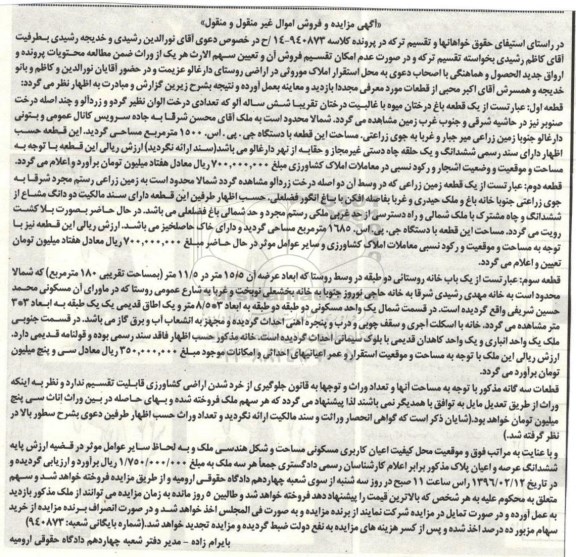 «آگهی مزایده و فروش اموال غیر منقول و منقول»
در راستای استیفای حقوق خواهانها و تقسیم ترکه در پرونده کلاسه ۹۴۰۸۷۳-۱۴/ح در خصوص دعوی آقای نورالدین رشیدی و خدیجه رشیدی بطرفیت
آقای کاظم رشیدی بخواسته تقسیم ترکه و در صورت عدم امکان تقسیم فروش آن و تعیین سهم الارث هر یک از وراث ضمن مطالعه محتویات پرونده و
اوراق جدید الحصول و هماهنگی با اصحاب دعوی به محل استقرار املاک موروثی در اراضی روستای دارغالو عزیمت و در حضور آقایان نورالدین و کاظم و بانو
خدیجه و همسرش آقای اکبر محبی از قطعات مورد معرفی مجددا بازدید و معاینه بعمل آورده و نتیجه بشرح زیرین گزارش و مبادرت به اظهار نظر می گردد:
قطعه اول: عبارتست از یک قطعه باغ درختان میوه با غالبیت درختان تقریبا شش ساله آلو که تعدادی درخت الوان نظیر گردو و زردآلو و چند اصله درخت
صنوبر نیز در حاشیه شرقی و جنوب غرب زمین مشاهده می گردد. شمالا محدود است به ملک آقای محسن شرقا به جاده سرویس کانال عمومی و بتونی
دارغالو جنوبا زمین زراعی میر جبار و غربا به جوی زراعتی. مساحت این قطعه با دستگاه جی. پی. اس. ۱۵۰۰ مترمربع مساحی گردید. این قطعه حسب
اظهار دارای سند رسمی ششدانگ و یک حلقه چاه دستی غیرمجاز و حقابه از نهر دارغالو می باشد(سند ارائه نگردید) ارزش ریالی این قطعه با توجه به
مساحت و موقعیت و وضعیت اشجار و رکود نسبی در معاملات املاک کشاورزی مبلغ ۷۰۰,۰۰۰,۰۰۰ ریال معادل هفتاد میلیون تومان برآورد و اعلام می گردد.
قطعه دوم: عبارتست از یک قطعه زمین زراعی که در وسط آن دو اصله درخت زردآلو مشاهده گردد شمالا محدود است به زمین زراعی رستم مجرد شرقا به
جوی زراعتی جنوبا خانه باغ و ملک حیدری و غربا بفاصله افکن با باغ انگور فضلعلی. حسب اظهار طرفین این قطعه دارای سند مالکیت دو دانگ مشاع از
ششدانگ و چاه مشترک با ملک شمالی و راه دسترسی از حد غربی ملکی رستم مجرد و حد شمالی باغ فضلعلی می باشد. در حال حاضر بصورت بلا کشت
رویت می گردد. مساحت این قطعه با دستگاه جی. پی. اس. ۱۶۸۵ مترمربع مساحی گردید و دارای خاک حاصلخیز می باشد. ارزش ریالی این قطعه نیز با
توجه به مساحت و موقعیت و رکود نسبی معاملات املاک کشاورزی و سایر عوامل موثر در حال حاضر مبلغ ۷۰۰,۰۰۰,۰۰۰ ریال معادل هفتاد میلیون تومان
تعیین و اعلام می گردد.
قطعه سوم: عبارتست از یک باب خانه روستائی دو طبقه در وسط روستا که ابعاد عرصه آن ۱۵/۵ متر در ۱۱/۵ متر (بمساحت تقریبی ۱۸۰ مترمربع) که شمالا
محدود است به خانه مهدی رشیدی شرقا به خانه حاجی نوروز جنوبا به خانه بخشعلی نوبخت و غربا به شارع عمومی روستا که در ماورای آن مسکونی محمد
حسین شریفی واقع گردیده است. در قسمت شمال یک واحد مسکونی دو طبقه دو طبقه به ابعاد ۵۰۳/۸ متر و یک اطاق قدیمی یک یک طبقه به ابعاد ۳۰۳
متر مشاهده می گردد. خانه با اسکلت آجری و سقف چوبی و درب و پنجره آهنی احداث گردیده و مجهز به انشعاب آب و برق گاز می باشد. در قسمت جنوبی
ملک یک واحد انباری و یک واحد کاهدان قدیمی با بلوک سیمانی احداث گردیده است. خانه مذکور حسب اظهار فاقد سند رسمی بوده و قولنامه قدیمی دارد.
ارزش ریالی این ملک با توجه به مساحت و موقعیت استقرار و عمر اعیانیهای احداثی و امکانات موجود مبلغ ۳۵۰,۰۰۰,۰۰۰ ریال معادل سی و پنج میلیون
تومان برآورد می گردد.
قطعات سه گانه مذکور با توجه به مساحت آنها و تعداد وراث و توجها به قانون جلوگیری از خرد شدن اراضی کشاورزی قابلیت تقسیم ندارد و نظر به اینکه
وراث از طریق تعدیل مایل به توافق با همدیگر نمی باشند لذا پیشنهاد می گردد که هر سهم ملک فروخته شده و بهای حاصله در بین وراث اناث سی پنج
میلیون تومان خواهد بود.(شایان ذکر است که گواهی انحصار وراثت و سند مالکیت ارائه نگردید و تعداد وراث حسب اظهار طرفین دعوی بشرح سطور بالا در
نظر گرفته شد.)
و با عنایت به مراتب فوق و موقعیت محل کیفیت اعیان کاربری مسکونی مساحت و شکل هندسی ملک و به لحاظ سایر عوامل موثر در قضیه ارزش پایه
ششدانگ عرصه و اعیان پلاک مذکور برابر اعلام کارشناسان رسمی دادگستری جمعاً هر سه ملک به مبلغ ۱/۷۵۰/۰۰۰/۰۰۰ ریال برآورد و ارزیابی گردیده و
در تاریخ ۱۳۹۶/۰۲/۱۲ راس ساعت ۱۱ صبح در روز سه شنبه از سوی شعبه چهاردهم دادگاه حقوقی ارومیه و از طریق مزایده فروخته خواهد شد و سهم
متعلق به محکوم علیه به هر شخص که بالاترین قیمت را پیشنهاد دهد فروخته خواهد شد و طالبین ۵ روز مانده به زمان مزایده می توانند از ملک مذکور بازدید
به عمل آورده و در صورت تمایل در مزایده شرکت نمایند از برنده مزایده و به صورت فی المجلس اخذ خواهد شد و در صورت انصراف برنده مزایده از خرید
سهام مزبور ده درصد اخذ شده و پس از کسر هزینه های مزایده به نفع دولت ضبط گردیده و مزایده تجدید خواهد شد.(شماره بایگانی شعبه: ۹۴۰۸۷۳)
بایرام زاده - مدیر دفتر شعبه چهاردهم دادگاه حقوقی ارومیه